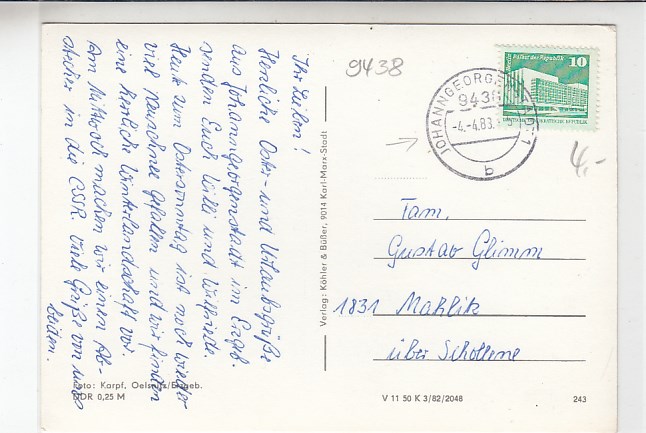 Ihr Lieben!
Herzliche Oster- und Urlaubsgrüße
aus Johanngeorgenstadt im Ergeb.
senden Euch Willi und Wilfriede.
Heute zum Ostersonntag ist noch wieder
viel Neuschnee gefallen und wir finden
eine herrliche Winterlandschaft vor.
Am Mittwoch machen wir einen Ab-
stecher in die CSSR. Viele Grüße von uns
beiden.
Foto: Karpf, Oelsnitz/Erzgeb.
DDR 0,25 M
Verlag: Köhler & Büßer, 9014 Karl-Marx-Stadt
9438
Palast der Republik
10
JOHANNGEORGENSTADT 1
9438
-4.-4.83.
b
4,-
Fam.
Gustav Glimm
1831 Mahlitz
über Schollene
V 11 50 K 3/82/2048
243